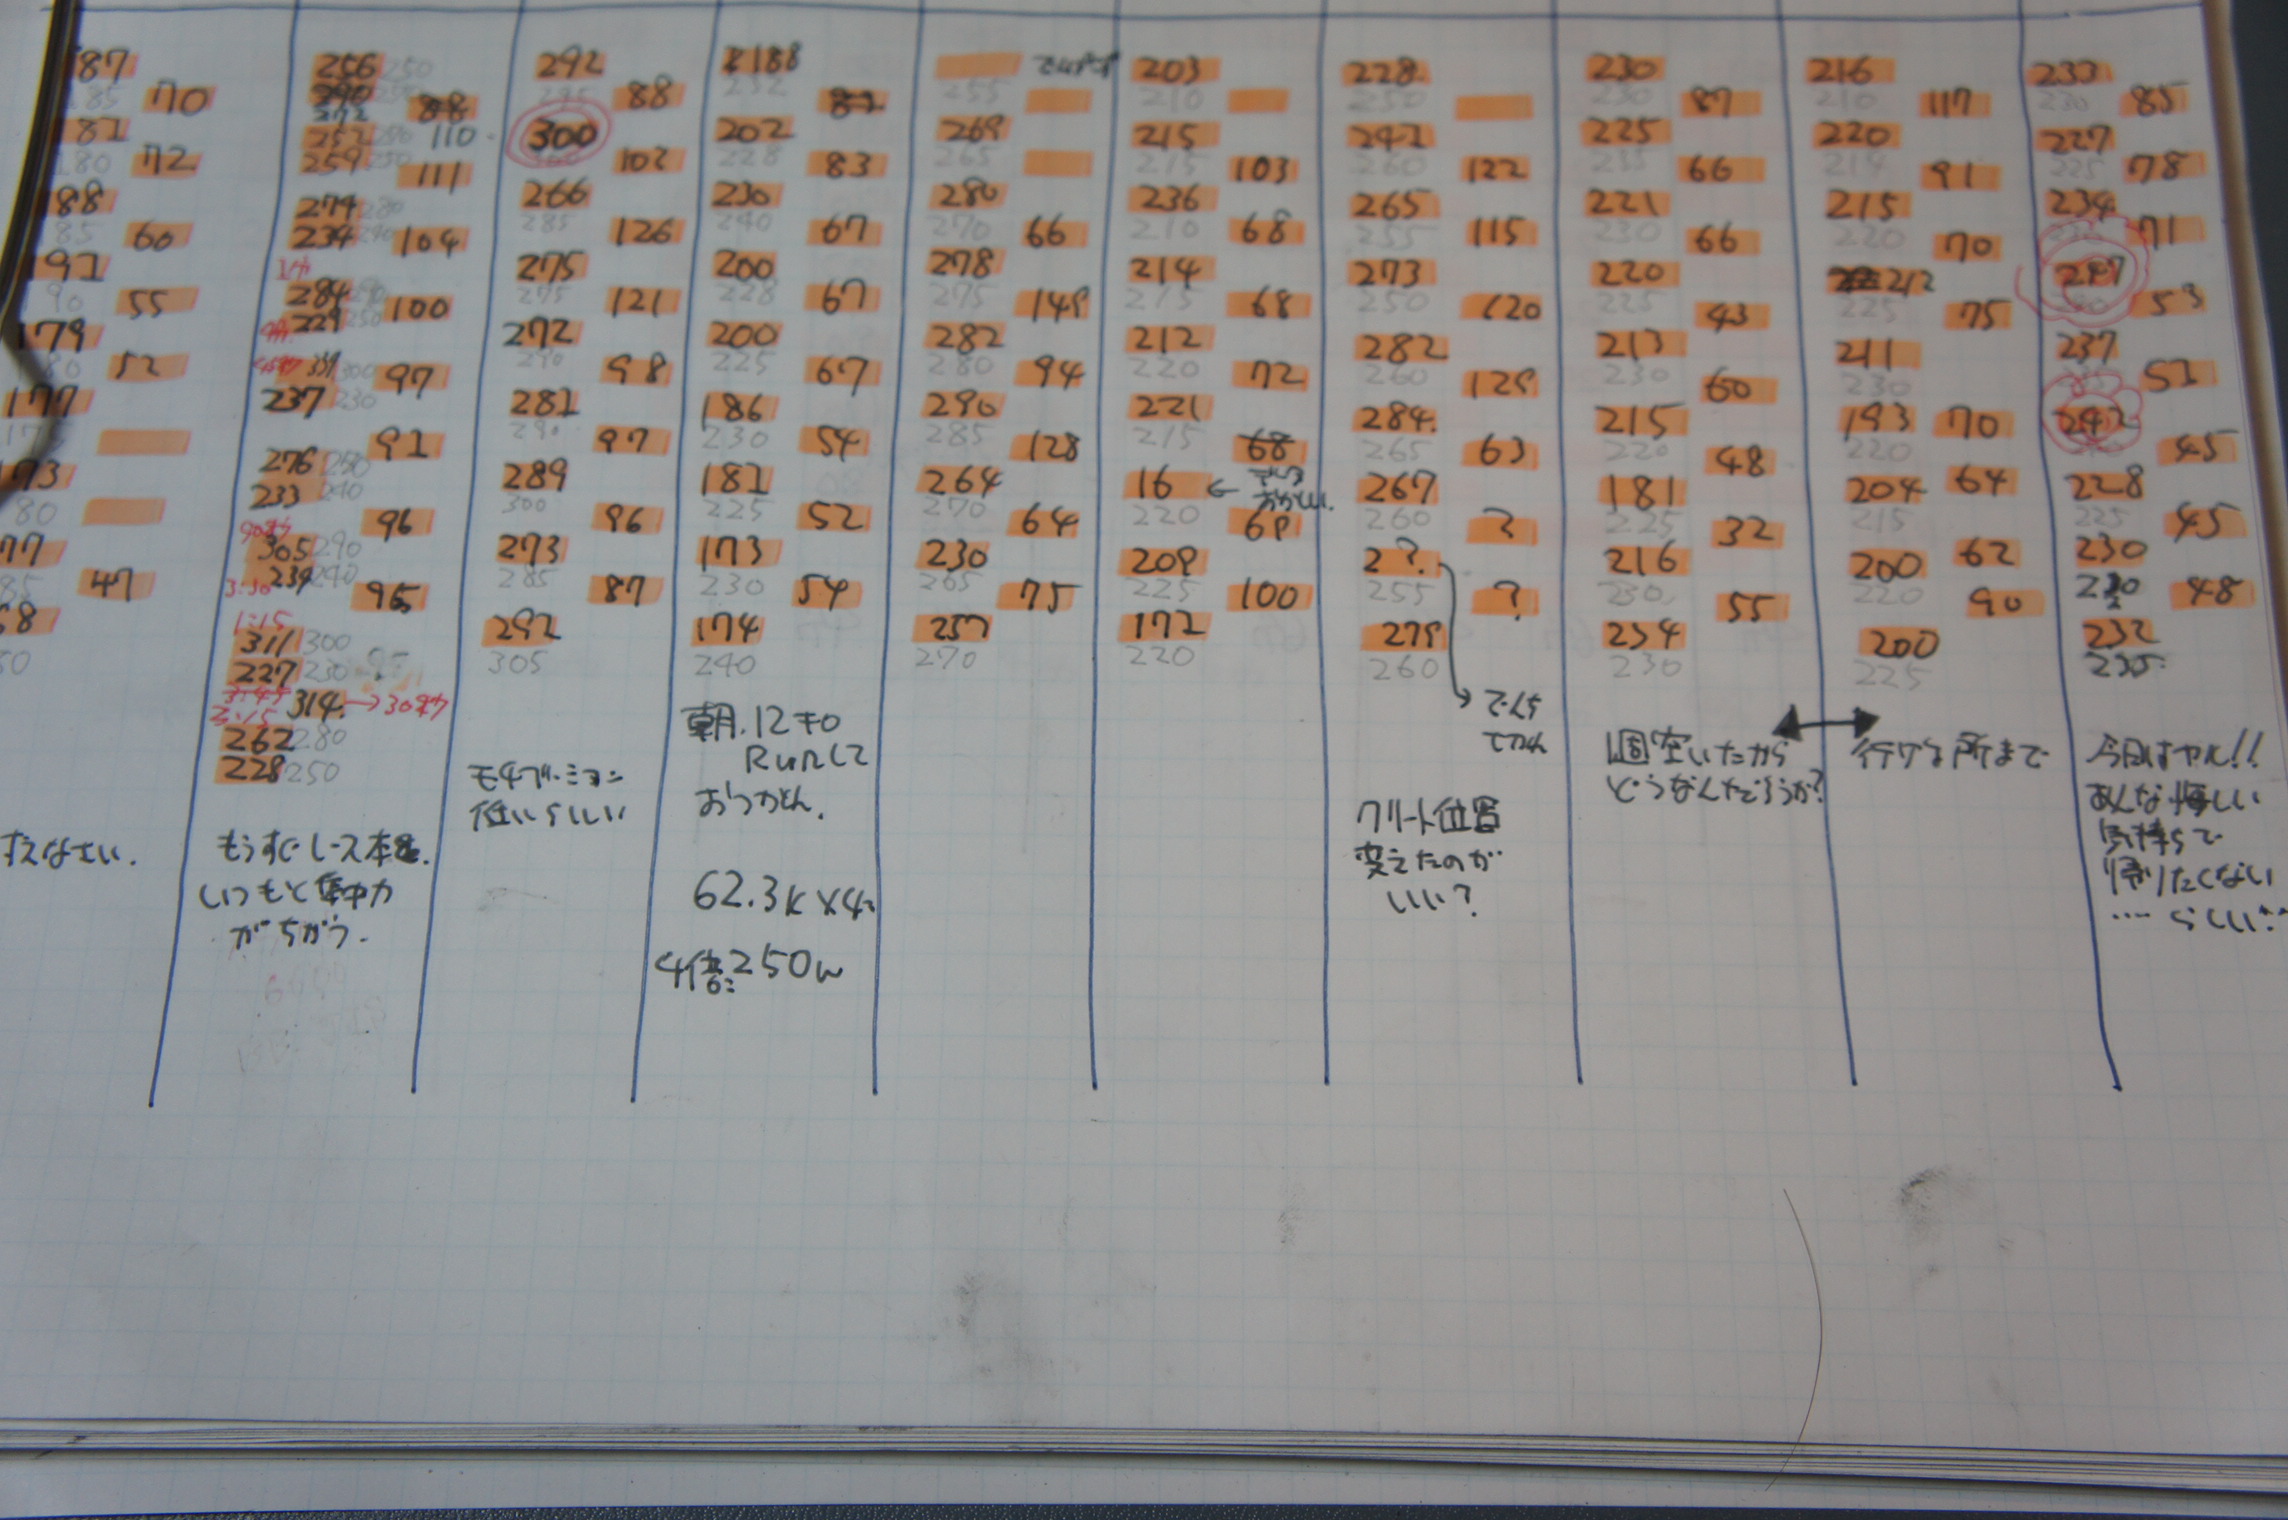 87
70
81
180
72
88
85
60
191
90
55
179
80
52
177
173
80
77
85
47
68
50
すえなさい.
256 250
290 250
272
88
252 280
110
259 250
111
274 280
234 240
104
1分
284 290
100
229 250
300
97
237 230
91
276 250
233 240
96
90秒
305 290
234 240
3:30
95
1:15
311 300
227 230
3:45
3:15
314 → 30秒
262 280
228 250
もうすぐレース本番.
いつもと集中力
がちがう.
292
295
88
300
300
102
266
285
126
275
275
121
272
290
98
281
290
97
289
300
96
273
285
87
292
305
モチベーション
低いらしい
188
232
202
228
83
230
240
67
200
228
67
200
225
67
186
230
54
181
225
52
173
230
54
174
240
朝.12キロ
Runして
おつかれん.
62.3K×4=
4倍=250w
255
269
265
280
270
66
278
275
149
282
280
94
290
285
128
264
270
64
230
265
75
257
270
203
210
215
215
103
236
210
68
214
215
68
212
220
72
221
215
68
16 ←
おかしい.
220
69
209
225
100
172
220
228
250
242
260
122
265
255
115
273
250
120
282
260
129
284
265
63
267
260
?
2?
255
?
279
260
でんち
クリート位置
変えたのが
いい?
230
230
87
225
235
66
221
230
66
220
225
43
213
230
60
215
220
48
181
225
32
216
230
55
234
230
1週空いたから
どうなんだろうか?
216
210
117
220
214
91
215
220
70
212
225
75
211
230
193
70
220
204
64
215
200
62
220
90
200
225
行ける所まで
233
230
85
227
225
78
234
71
247
53
237
51
242
45
228
225
45
230
230
48
232
235
今日はヤル!!
あんな悔しい
気持ちで
帰りたくない
…らしい…